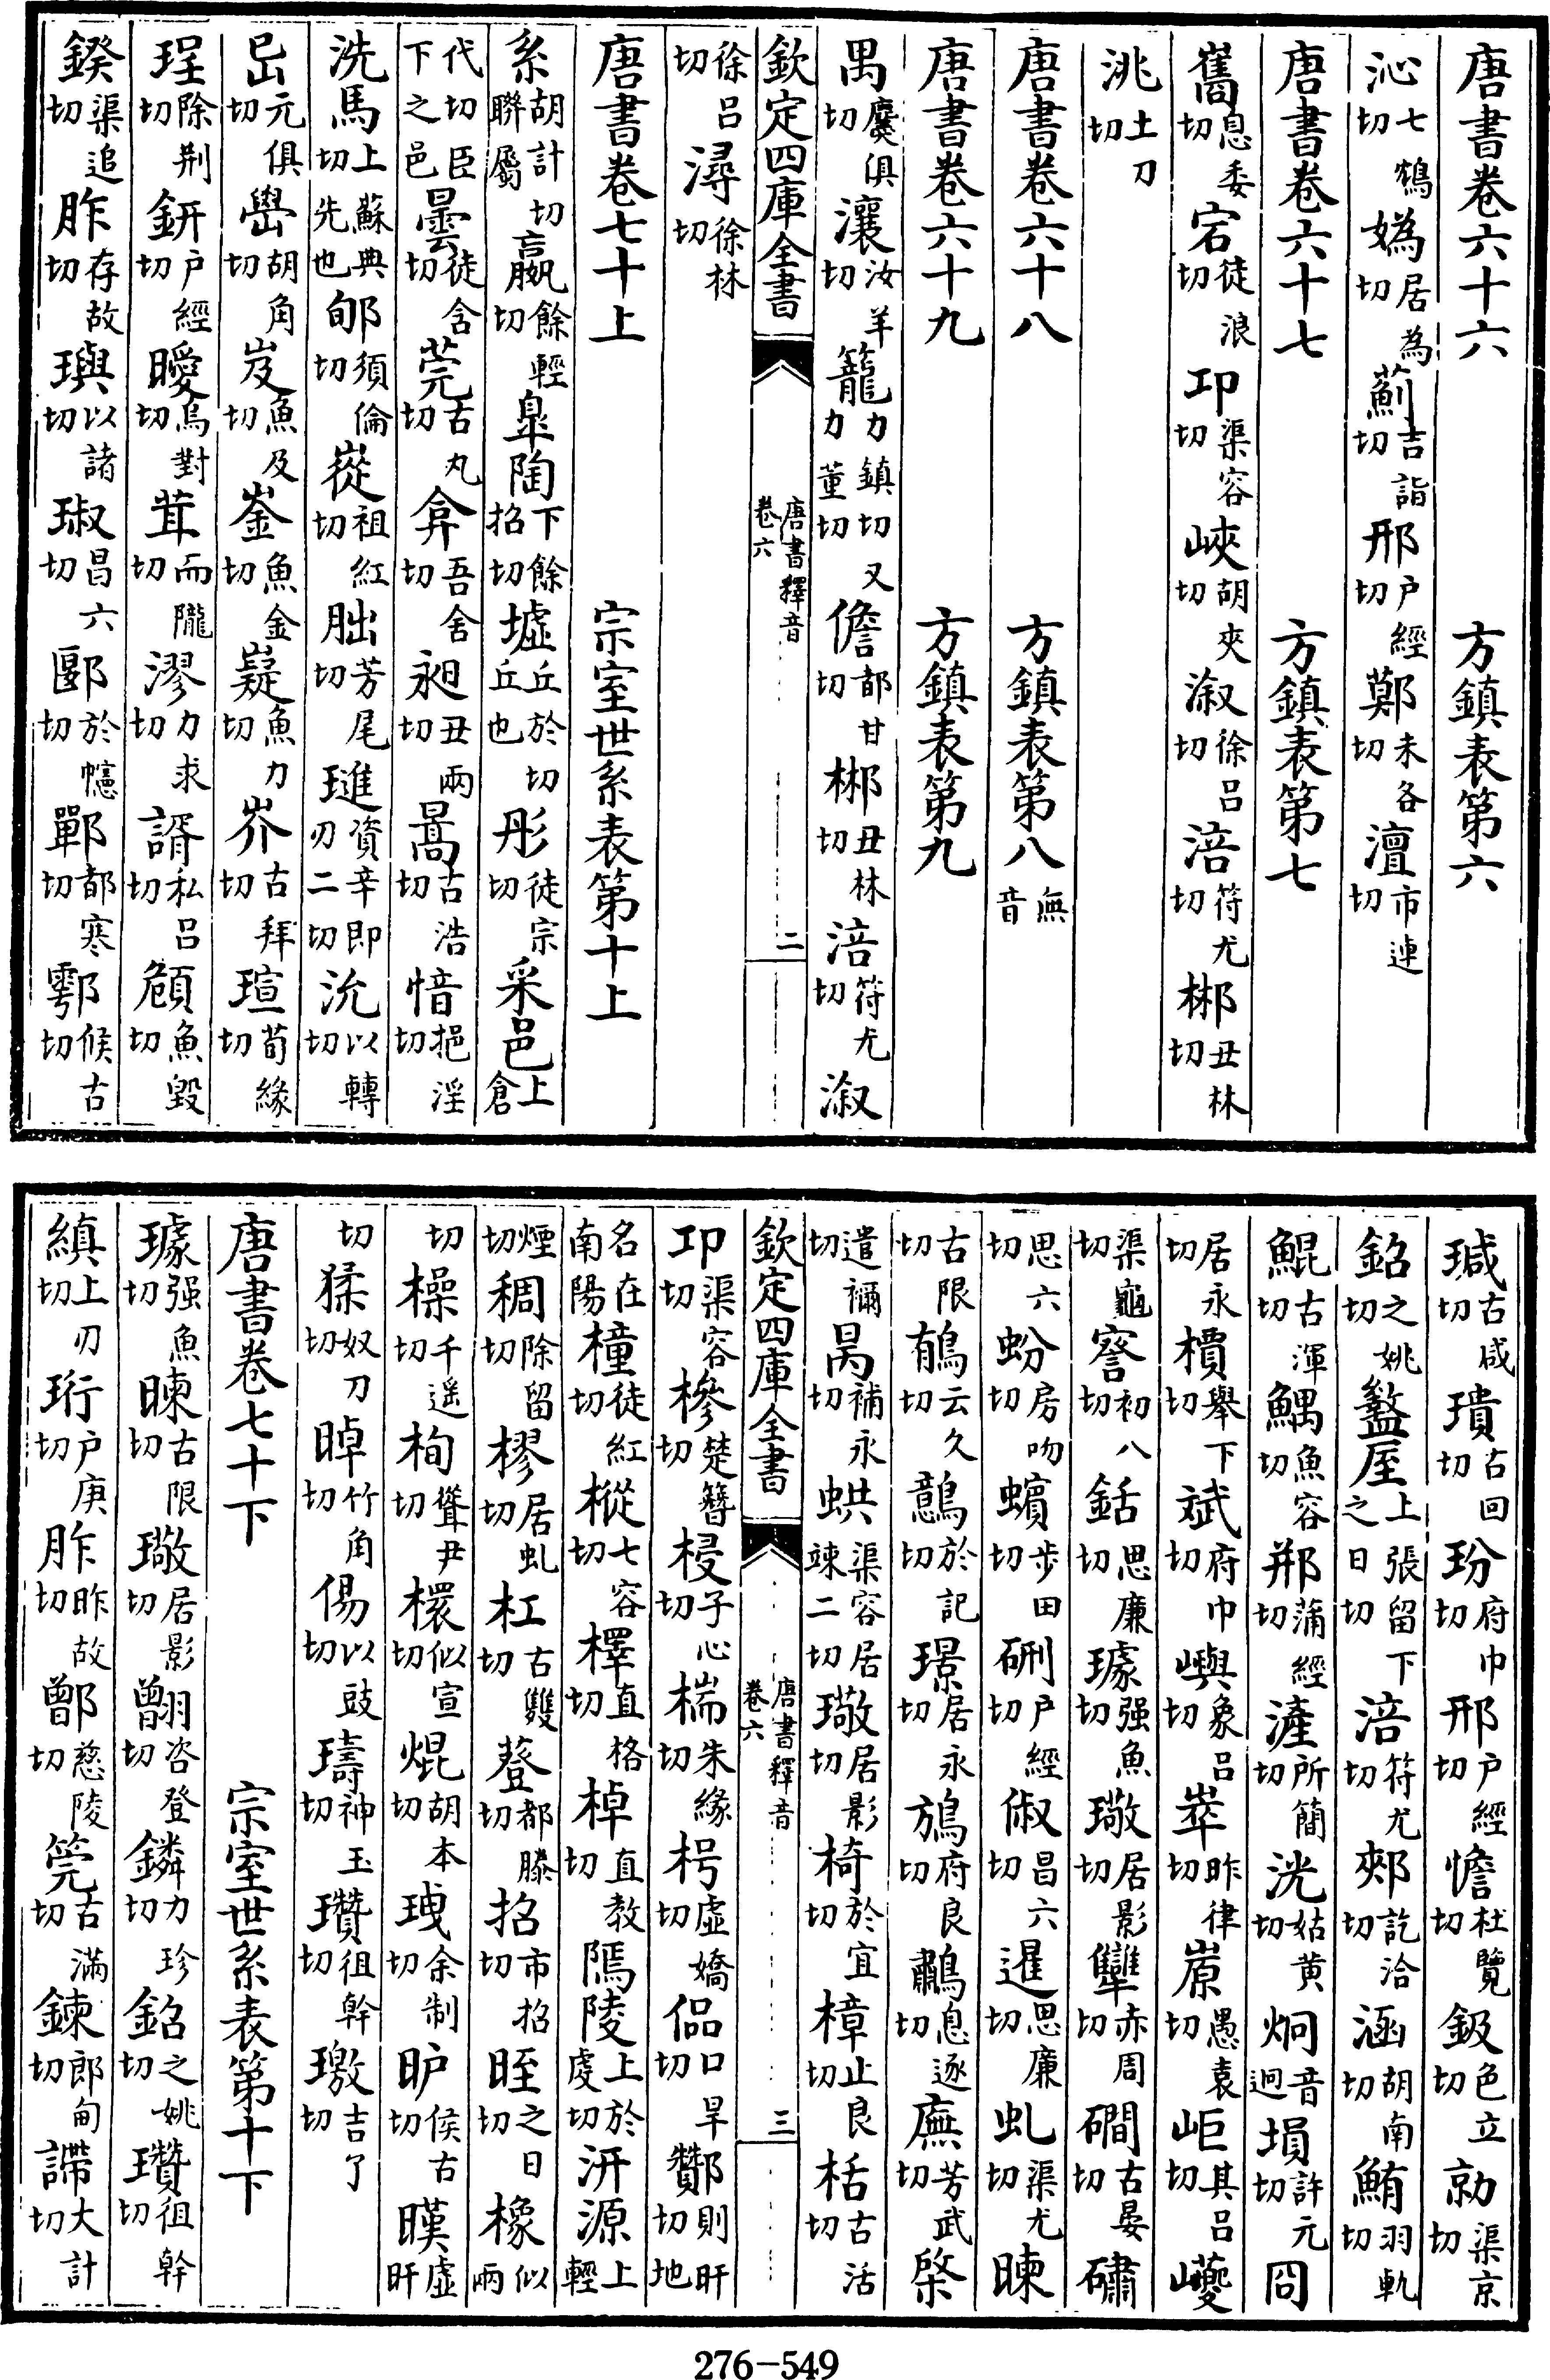 唐書卷六十六　方鎮表第六
沁七鴆切 嬀居為切 薊吉詣切 邢户經切 鄚未各切 澶市連切
唐書卷六十七　方鎮表第七
嶲息委切 宕徒浪切 邛渠容切 峽胡夾切 溆徐吕切 涪符尤切 郴丑林切
洮土刀切
唐書卷六十八　方鎮表第八無音
唐書卷六十九　方鎮表第九
麌俱切 瀼汝羊切 籠力鎮切又力董切 儋都甘切 郴丑林切 涪符尤切 溆
欽定四庫全書　唐書釋音卷六　二
徐吕切 潯徐林切
唐書卷七十上　宗室世系表第十上
系胡計切聯屬 嬴餘輕切 臯陶下餘招切 墟丘於切丘也 彤徒宗切 采邑上倉
代切臣下之邑 曇徒含切 莞古丸切 弇吾舍切 昶丑兩切 暠古浩切 愔挹淫切
洗馬上蘇典切先也 郇須倫切 嵸祖紅切 朏芳尾切 璡資辛即刃二切 沇以轉切
嵒元俱切 嶨胡角切 岌魚及切 崟魚金切 嶷魚力切 岕古拜切 瑄荀緣切
珵除荆切 鈃户經切 曖烏對切 茸而隴切 漻力求切 諝私吕切 頠魚毀切
鍨渠追切 胙存故切 璵以諸切 琡昌六切 郾於幰切 鄲都寒切 鄠候古切
瑊古咸切 璝古回切 玢府巾切 邢户經切 憺杜覽切 鈒色立切 勍渠京切
鉊之姚切 盩厔上張留下之日切 涪符尤切 郟訖洽切 涵胡南切 鮪羽軌切
鯤古渾切 鰅魚容切 郱蒲經切 滻所簡切 洸姑黄切 炯音迥 塤許元切 冏
居永切 檟舉下切 斌府巾切 嶼象吕切 崒昨律切 㟲愚袁切 岠其吕切 巙
渠龜切 詧初八切 銛思廉切 璩强魚切 璥居影切 犨赤周切 磵古晏切 磠
思六切 蚡房吻切 蠙步田切 硎户經切 俶昌六切 暹思廉切 虬渠尤切 暕
古限切 鵤云久切 鷾於記切 璟居永切 鴋府良切 鷫息逐切 廡芳武切 棨
遣禰切 昺補永切 蛬渠容居竦二切 璥居影切 椅於宜切 樟止良切 栝古活切
欽定四庫全書　唐書釋音卷六　三
邛渠容切 槮楚簪切 梫子心切 椯朱緣切 枵虚嬌切 偘口旱切 酇則旰切地
名在南陽 橦徒紅切 樅七容切 檡直格切 棹直教切 隖陵上於虔切 汧源上輕
煙切 稠除留切 樛居虬切 杠古雙切 簦都滕切 招市招切 晊之日切 橡似兩
切 橾千遥切 栒聳尹切 檈似宣切 焜胡本切 䟰余制切 昈侯古切 暵虚旰
切 猱奴刀切 晫竹角切 偒以豉切 璹神玉切 瓚徂幹切 璬吉了切
唐書卷七十下　宗室世系表第十下
璩强魚切 暕古限切 璥居影切 翿咨登切 鏻力珍切 鉊之姚切 瓚徂幹切
縝上刃切 珩户庚切 胙昨故切 鄫慈陵切 筦古滿切 鍊郎甸切 諦大計切
276-549